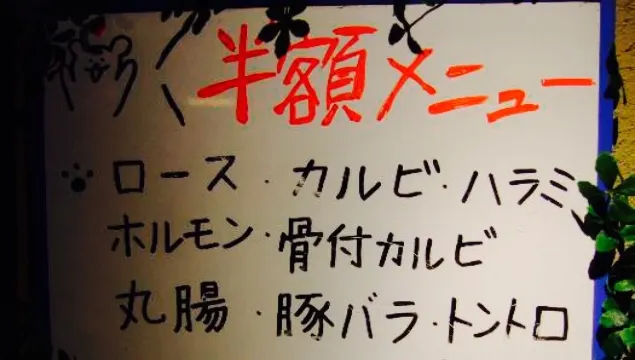 半額メニュー
ロース・カルビ・ハラミ
ホルモン・骨付カルビ
丸腸・豚バラ・トントロ